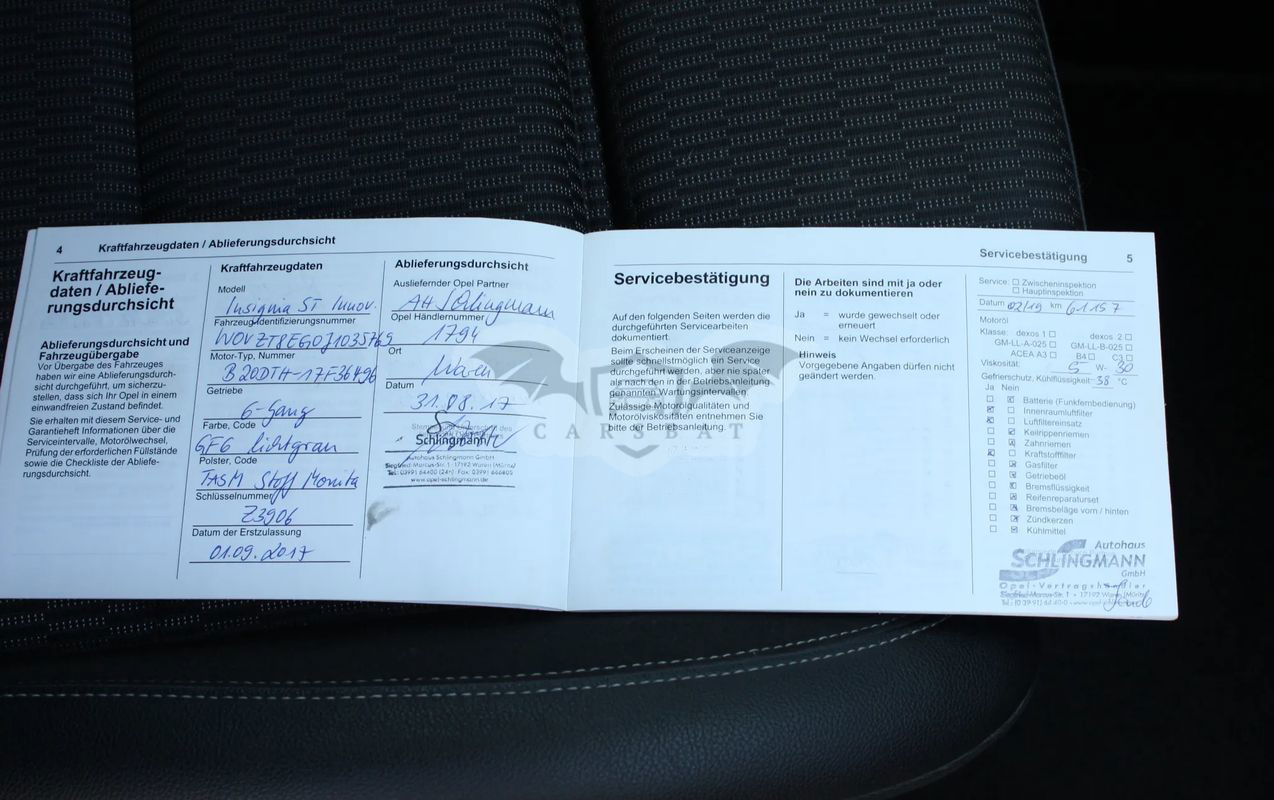 4 Kraftfahrzeugdaten / Ablieferungsdurchsicht
Kraftfahrzeug-
daten / Abliefe-
rungsdurchsicht
Ablieferungsdurchsicht und
Fahrzeugübergabe
Vor Übergabe des Fahrzeuges
haben wir eine Ablieferungsdurch-
sicht durchgeführt, um sicherzu-
stellen, dass sich Ihr Opel in einem
einwandfreien Zustand befindet.
Sie erhalten mit diesem Service- und
Garantieheft Informationen über die
Serviceintervalle, Motorölwechsel,
Prüfung der erforderlichen Füllstände
sowie die Checkliste der Abliefe-
rungsdurchsicht.
Kraftfahrzeugdaten
Modell
Insignia ST Innov.
Fahrzeug-Identifizierungsnummer
W0VZT8EG0J1035769
Motor-Typ, Nummer
B20DTH-17F36496
Getriebe
6-Gang
Farbe, Code
GF6 lichtgrau
Polster, Code
TASM Stoff Monita
Schlüsselnummer
Z3906
Datum der Erstzulassung
01.09.2017
Ablieferungsdurchsicht
Ausliefernder Opel Partner
AH Schlingmann
Opel Händlernummer
1794
Ort
Waren
Datum
31.08.17
Schlingmann
Autohaus Schlingmann GmbH
Siegfried-Marcus-Str. 1 · 17192 Waren (Müritz)
Tel.: 03991 64400 (24h) · Fax: 03991 666805
www.opel-schlingmann.de
CARSBAT
Servicebestätigung 5
Servicebestätigung
Auf den folgenden Seiten werden die
durchgeführten Servicearbeiten
dokumentiert.
Beim Erscheinen der Serviceanzeige
sollte schnellstmöglich ein Service
durchgeführt werden, aber nie später
als nach den in der Betriebsanleitung
genannten Wartungsintervallen.
Zulässige Motorölqualitäten und
Motorölviskositäten entnehmen Sie
bitte der Betriebsanleitung.
Die Arbeiten sind mit ja oder
nein zu dokumentieren
Ja = wurde gewechselt oder
erneuert
Nein = kein Wechsel erforderlich
Hinweis
Vorgegebene Angaben dürfen nicht
geändert werden.
Service: Zwischeninspektion
Hauptinspektion
Datum 02/19 km 61157
Motoröl
Klasse: dexos 1 dexos 2
GM-LL-A-025 GM-LL-B-025
ACEA A3 B4 C3
Viskosität: 5 W- 30
Gefrierschutz, Kühlflüssigkeit -38 °C
Ja Nein
Batterie (Funkfernbedienung)
Innenraumluftfilter
Luftfiltereinsatz
Keilrippenriemen
Zahnriemen
Kraftstofffilter
Gasfilter
Getriebeöl
Bremsflüssigkeit
Reifenreparaturset
Bremsbeläge vorn / hinten
Zündkerzen
Kühlmittel
Autohaus
SCHLINGMANN
GmbH
Opel-Vertragshändler
Siegfried-Marcus-Str. 1 · 17192 Waren (Müritz)